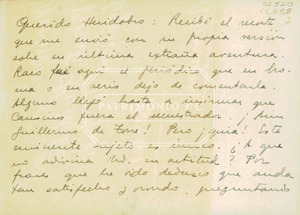 Querido Huidobro: Recibí el recorte
que me envió con su propia versión
sobre su última extraña aventura.
Raro fué aquí el periódico que en bro-
ma o en serio dejó de comentarla.
Alguno llegó hasta insinuar que
Cansinos fuera el secuestrador. ¡Aun
Guillermo de Torre! Pero ¡quiá! Este
eminente sujeto es único. ¿A que
no adivina Ud. su actitud? Por
frases que le oído deduzco que anda
tan satisfecho y orondo, preguntando